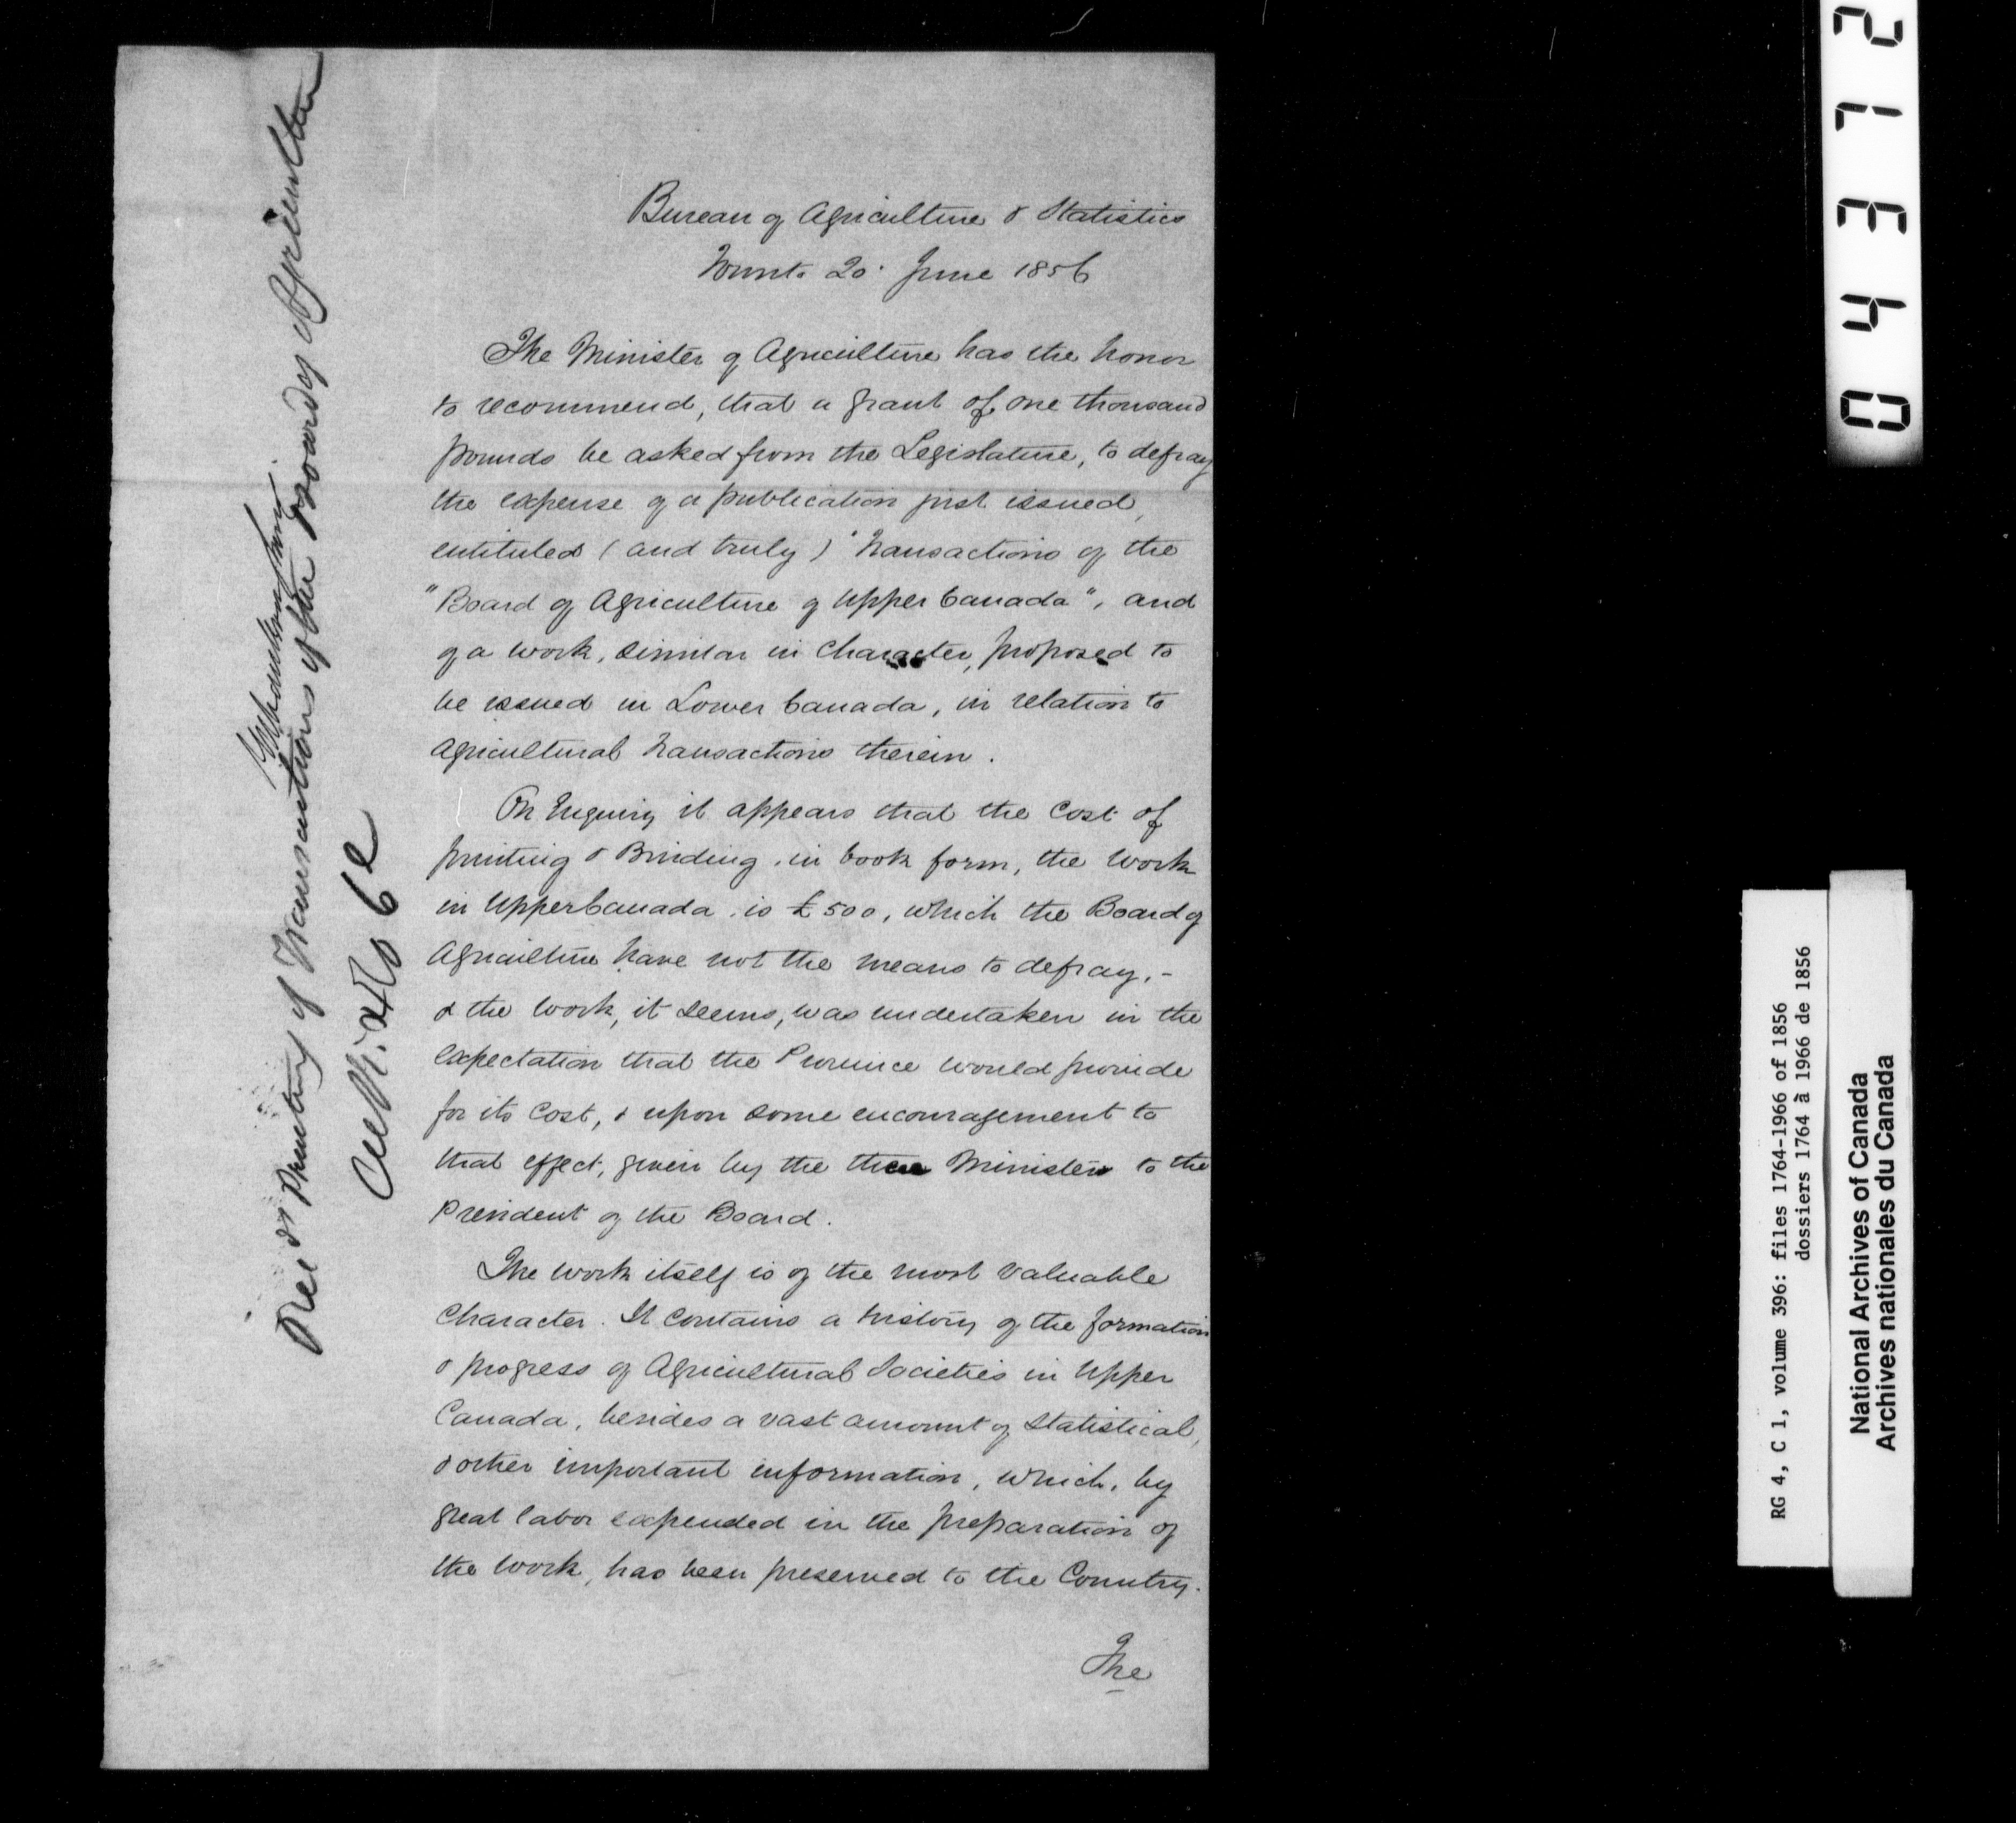 Bureau of Agriculture & Statistics
Toronto 20 June 1856
The Minister of Agriculture has the honor
to recommend, that a grant of one thousand
pounds be asked from the Legislature, to defray
the expense of a publication just issued,
entituled (and truly) "Transactions of the
"Board of Agriculture of Upper Canada", and
of a work, similar in character, proposed to
be issued in Lower Canada, in relation to
Agricultural Transactions therein.
On Enquiry it appears that the cost of
printing & Binding, in book form, the work
in Upper Canada, is £500, which the Board of
Agriculture have not the means to defray, -
& the work, it seems, was undertaken in the
expectation that the Province would provide
for its cost, & upon some encouragement to
that effect, given by the then Minister to the
President of the Board.
The work itself is of the most valuable
character. It contains a history of the formation
& progress of Agricultural Societies in Upper
Canada, besides a vast amount of statistical,
& other important information, which, by
great labor expended in the preparation of
the work, has been preserved to the Country.
The
Printing of Transactions of the Board of Agriculture
04372
RG 4, C 1, volume 396: files 1764-1966 of 1856
dossiers 1764 à 1966 de 1856
National Archives of Canada
Archives nationales du Canada